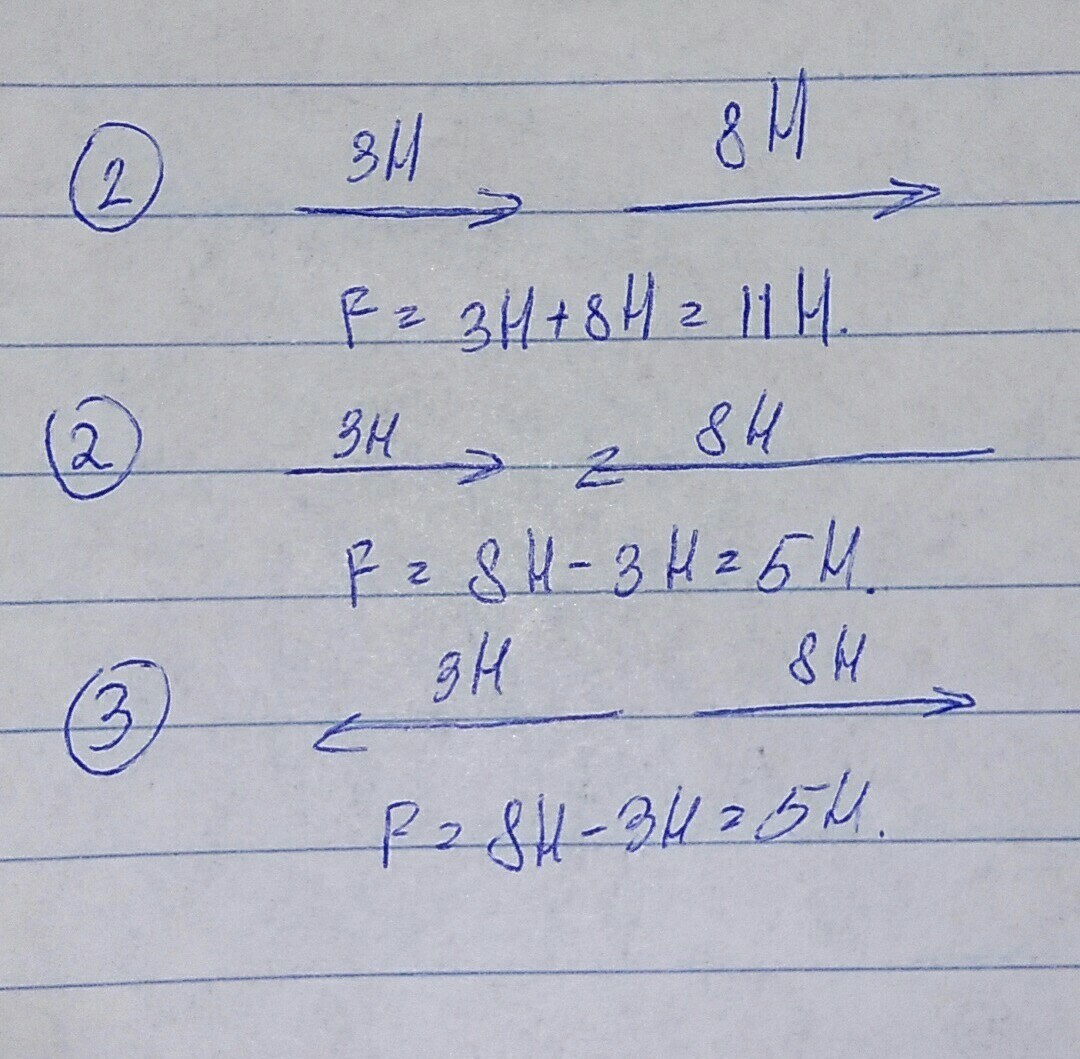 ② 3Н 8Н
F = 3Н + 8Н = 11Н.
② 3Н 8Н
F = 8Н - 3Н = 5Н.
③ 3Н 8Н
F = 8Н - 3Н = 5Н.